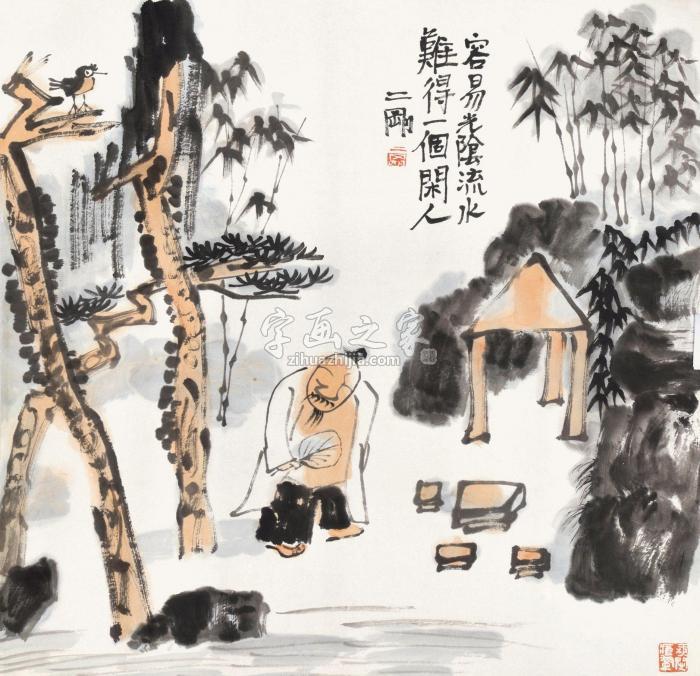 容易光陰流水
難得一個閑人
二剛
字画之家
zihuazhijia.com